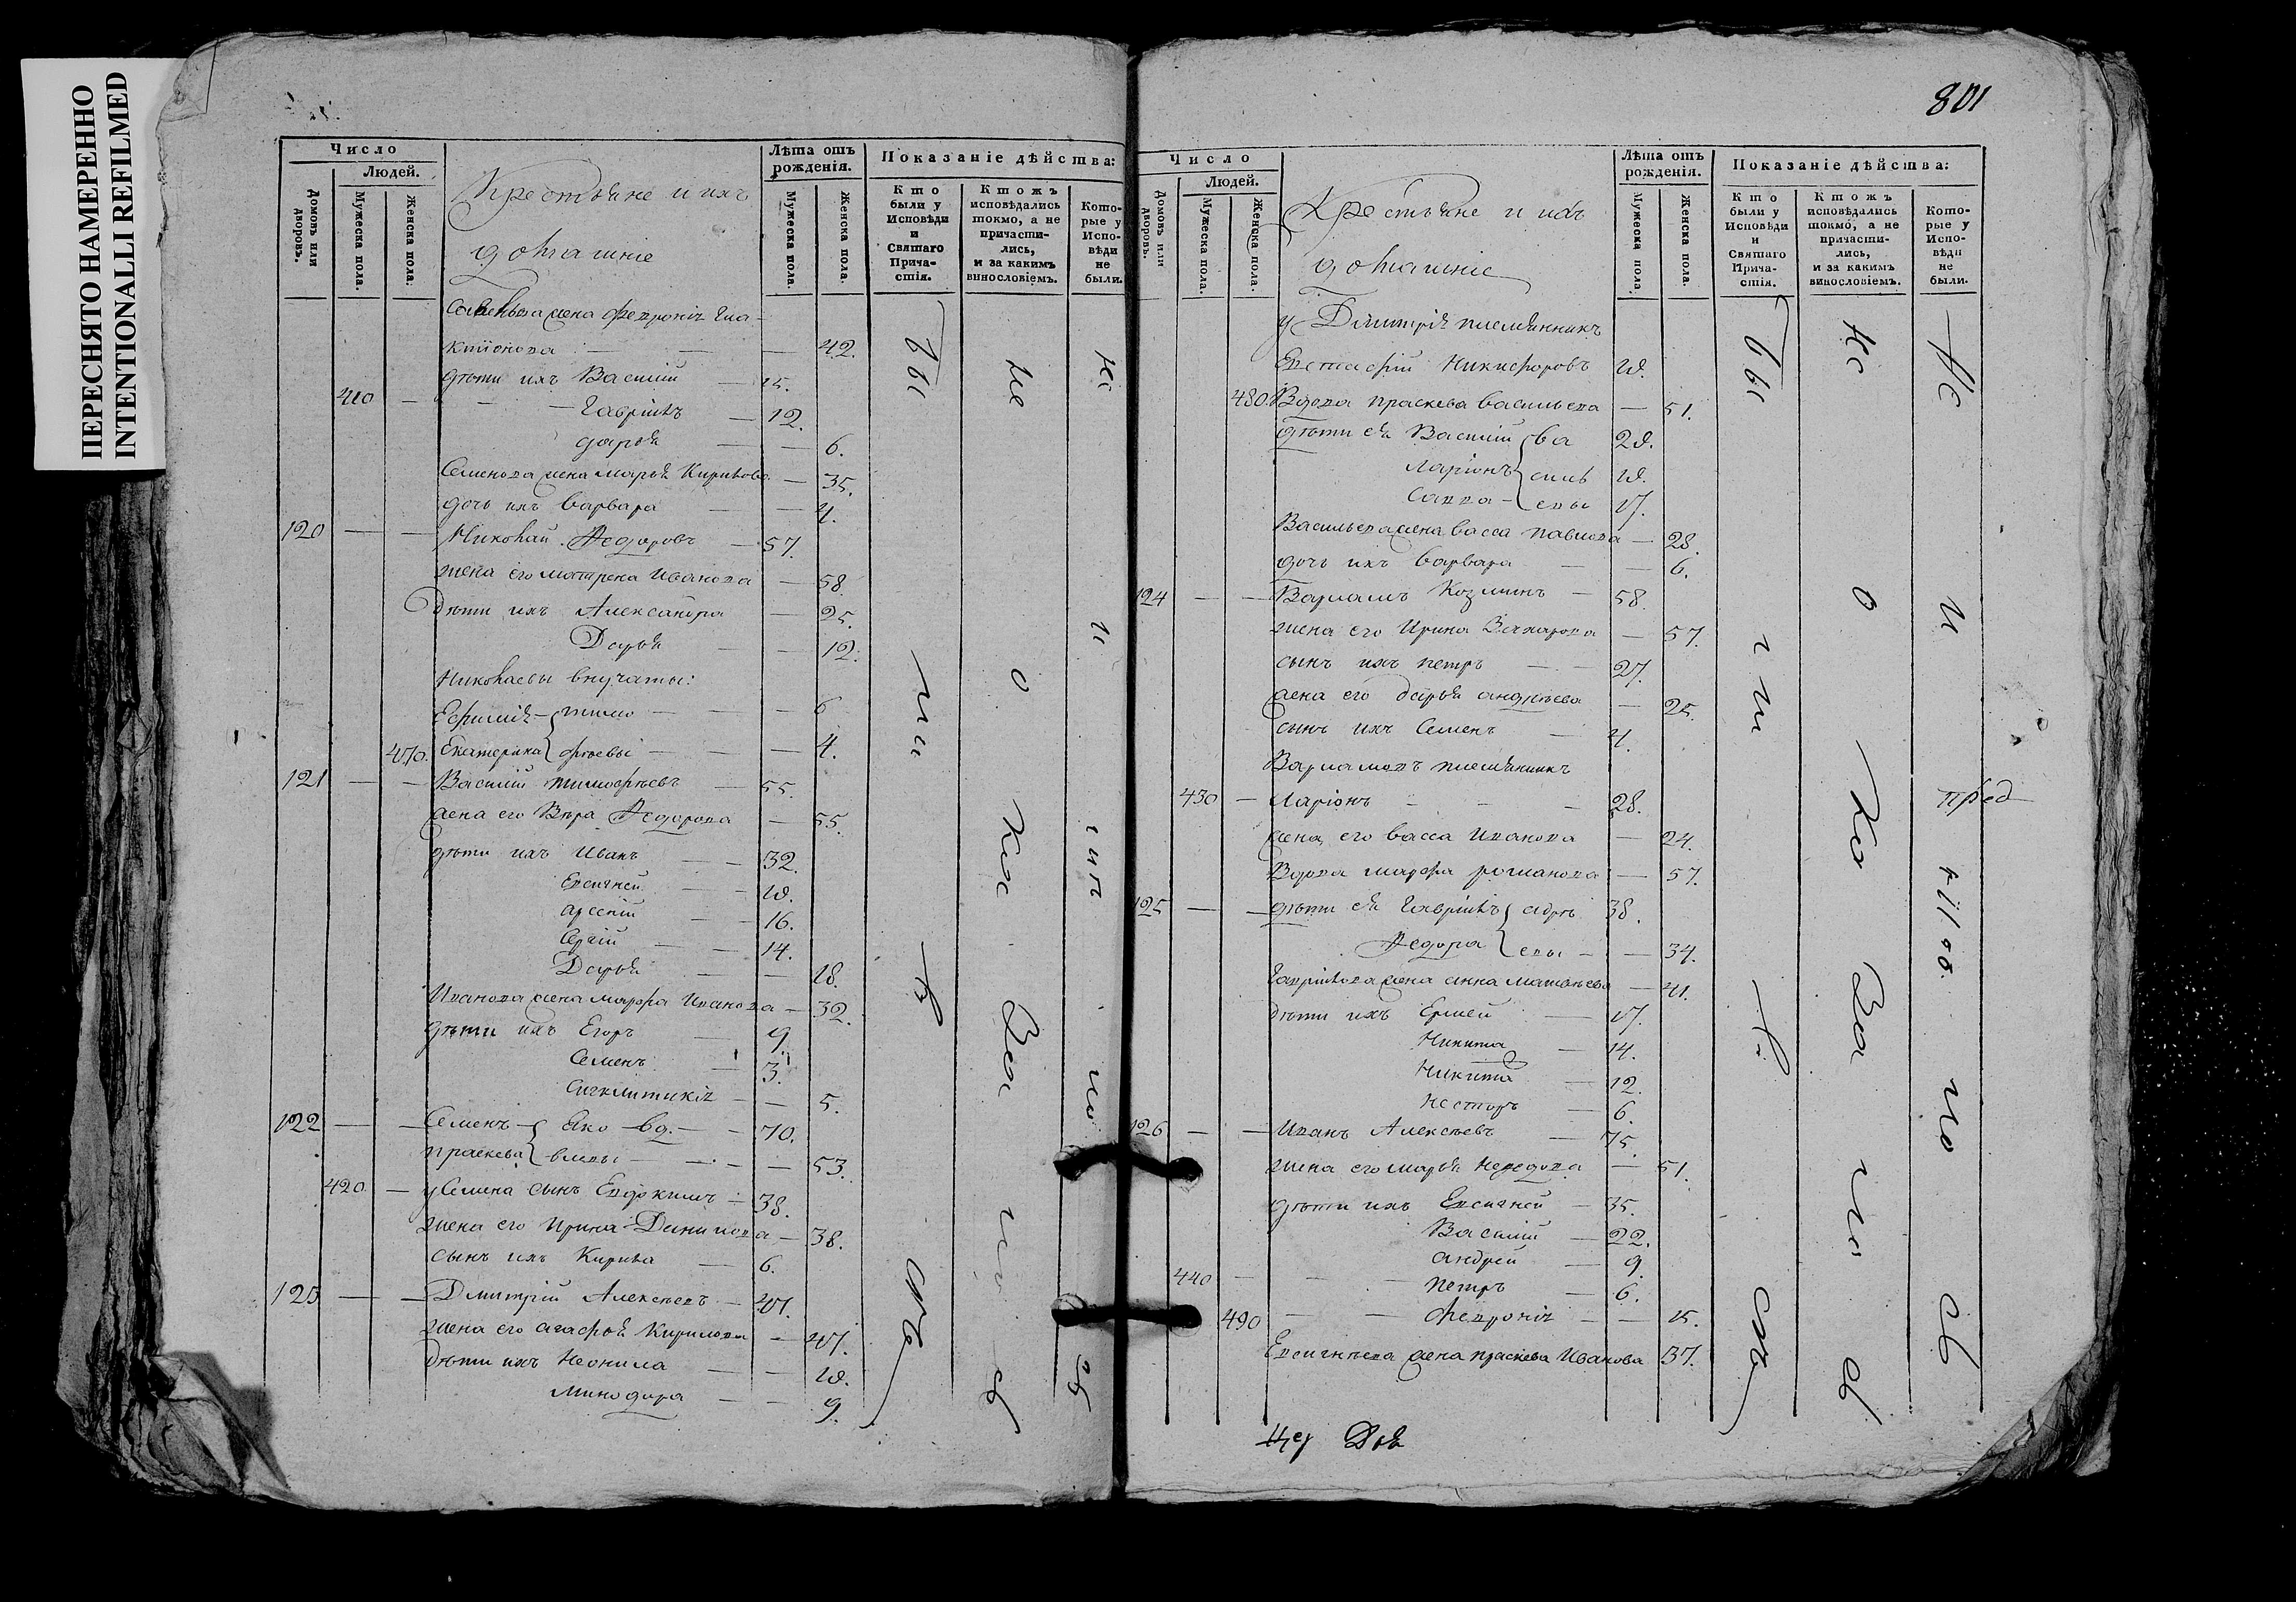 ПЕРЕСНЯТО НАМЕРЕННО
INTENTIONALLI REFILMED
Число
Людей.
Домовъ или дворовъ.
Мужеска пола.
Женска пола.
Крестьяне и ихъ
домашніе
Лѣта отъ рожденія.
Мужеска пола.
Женска пола.
Показаніе дѣйства:
Кто были у Исповѣди и Святаго Прича-стія.
Ктожъ исповѣдались токмо, а не причасти-лись, и за какимъ винословіемъ.
Кото-рые у Испо-вѣди не были.
жена Февронія Гала-
ктіонова — 42.
дѣти ихъ Василій — 15.
410 — Гавріилъ — 12.
Дарья — 6.
Семенова жена Марья Кирилова — 35.
дочь ихъ Варвара — 4.
120 — — Николай Федоровъ — 57.
жена его Матрена Иванова — 58.
Дѣти ихъ Александра — 25.
Дарья — 12.
Николаевы внучаты:
Ефимія — тимо — 6
470. Екатерина фѣевы — 4.
121 — — Василій Тимофѣевъ — 55.
жена его Вѣра Федорова — 55.
дѣти ихъ Иванъ — 32.
Евсигней — 18.
Арсеній — 16.
Сергій — 14.
Дарья — 18.
Иванова жена Марфа Иванова — 32.
дѣти ихъ Егоръ — 9.
Семенъ — 3.
Сигклитикія — 5.
122 — — Семенъ — Яко — вд. — 70.
Праскева влевы — 53.
420 — у Семена сынъ Евдокимъ — 38.
жена его Ирина Данилова — 38.
сынъ ихъ Кирила — 6.
123 — — Дмитрій Алексѣевъ — 47.
жена его Агафья Кирилова — 47.
Дѣти ихъ Неонила — 18.
Минодора — 9.
бы
ли
въ
не
о
ка
за
но
не
и
801
Число
Людей.
Домовъ или дворовъ.
Мужеска пола.
Женска пола.
Крестьяне и ихъ
домашніе
Лѣта отъ рожденія.
Мужеска пола.
Женска пола.
Показаніе дѣйства:
Кто были у Исповѣди и Святаго Прича-стія.
Ктожъ исповѣдались токмо, а не причасти-лись, и за какимъ винословіемъ.
Кото-рые у Испо-вѣди не были.
у Димитрія племянникъ
Евстафій Никифоровъ 18.
480. Вдова Праскева Васильева — 51.
дѣти ея Василій ва 28.
Ларіонъ силь 18.
Савва — евы 17.
Васильева жена Васса Павлова — 28.
дочь ихъ Варвара — 6.
124 — — Варламъ Козминъ — 58.
жена его Ирина Захарова — 57.
сынъ ихъ Петръ — 27.
жена его Дарья Андрѣева — 25.
сынъ ихъ Семенъ — 4.
Варламовъ племянникъ
430 — Ларіонъ — 28.
жена его Васса Иванова — 24.
Вдова Марфа Романова — 57.
125 — — дѣти ея Гавріилъ андрѣ 38.
Федора евы — 34.
Гавріилова жена Анна Матвѣева — 41.
Дѣти ихъ Ермей — 17.
Никита — 14.
Никита — 12.
Несторъ — 6.
126 — — Иванъ Алексѣевъ — 75.
жена его Марья — 51.
дѣти ихъ Евсигней — 35.
Василій — 22.
Андрей — 9.
440 — Петръ — 6.
490 — — Февронія — 15.
Евсигнѣева жена Праскева Иванова 37.
бы
не
о
ка
за
не